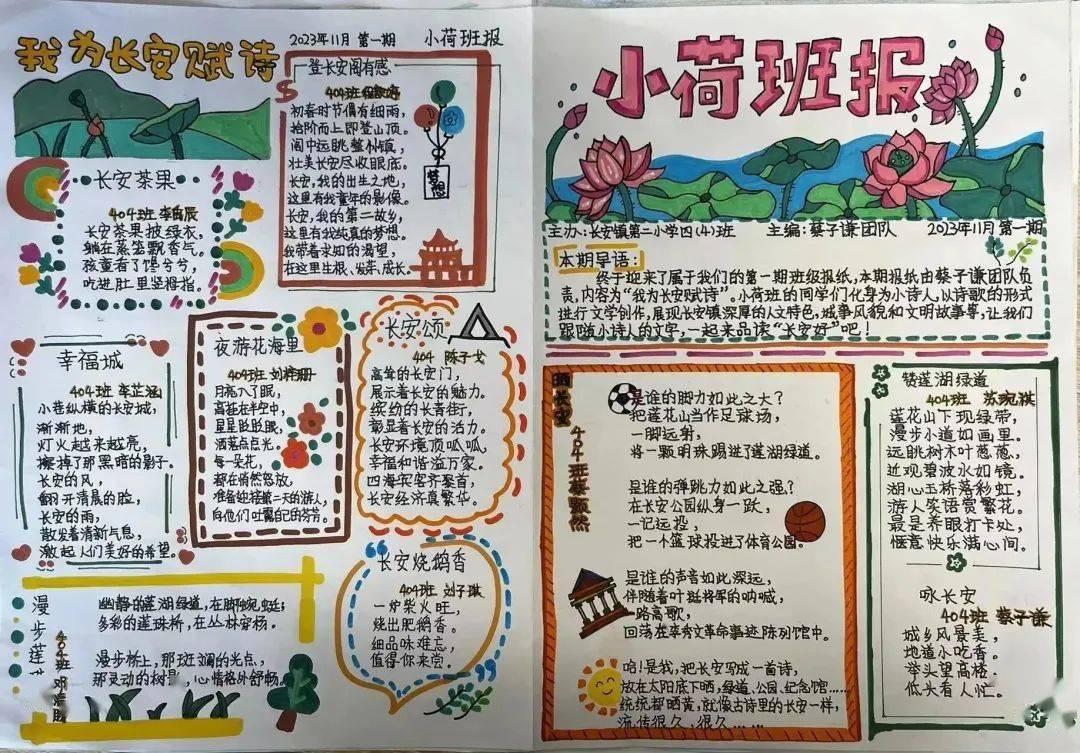 我为长安赋诗
2023年11月 第一期 小荷班报
登长安阁有感
404班
初春时节偶有细雨，
拾阶而上即登山顶。
阁中远眺整个镇，
壮美长安尽收眼底。
长安，我的出生之地，
这里有我童年的影像。
长安，我的第二故乡，
这里有我纯真的梦想。
我带着求知的渴望，
在这里生根、发芽、成长。
梦想
长安茶果
404班 李
长安茶果披绿衣，
躺在蒸笼飘香气。
孩童看了馋兮兮，
吃进肚里竖拇指。
幸福城
404班 李芷涵
小巷纵横的长安城，
渐渐地，
灯火越来越亮，
擦掉了那黑暗的影子。
长安的风，
翻开清晨的脸，
长安的雨，
散发着清新气息，
激起人们美好的希望。
夜游花海里
404班 刘梓珊
月亮入了眠，
高挂在半空中，
星星眨眨眼，
洒落点点光。
每一朵花，
都在悄然怒放，
准备迎接第二天的游人，
向他们吐露自己的芬芳。
长安颂
404 陈子戈
高耸的长安门，
展示着长安的魅力。
缤纷的长青街，
彰显着长安的活力。
长安环境顶呱呱，
幸福和谐溢万家。
四海宾客齐聚首，
长安经济真繁华。
长安烧鹅香
404班 刘子琪
一炉柴火旺，
烧出肥鹅香。
细品味难忘，
值得你来尝。
漫步莲
404班 邓
幽静的莲湖绿道，在脚下蜿蜒；
多彩的莲珠桥，在丛林容杨。
漫步桥上，那斑斓的光点，
那灵动的树影，心情格外舒畅。
小荷班报
主办：长安镇第二小学四(4)班 主编：蔡子谦团队 2023年11月 第一期
本期早语：
终于迎来了属于我们的第一期班级报纸，本期报纸由蔡子谦团队负
责，内容为“我为长安赋诗”。小荷班的同学们化身为小诗人，以诗歌的形式
进行文学创作，展现长安镇深厚的人文特色，城事风貌和文明故事等，让我们
跟随小诗人的文字，一起来品读“长安好”吧！
晒长安
404班蔡颢然
是谁的脚力如此之大？
把莲花山当作足球场，
一脚远射，
将一颗明珠踢进了莲湖绿道。
是谁的弹跳力如此之强？
在长安公园纵身一跃，
一记远投，
把一个篮球投进了体育公园。
是谁的声音如此深远，
伴随着叶挺将军的呐喊，
一路高歌，
回荡在卒秀文革命事迹陈列馆中。
哈！是我，把长安写成一首诗，
放在太阳底下晒，绿道、公园、纪念馆……
统统都晒黄，就像古诗里的长安一样，
流传很久，很久……
赞莲湖绿道
404班 苏琬祺
莲花山下现绿带，
漫步小道如画里。
远眺树木叶葱葱，
近观碧波水如镜。
湖心玉桥落彩虹，
游人笑语赏繁花。
最是养眼打卡处，
惬意快乐满心间。
咏长安
404班 蔡子谦
城乡风景美，
地道小吃香。
举头望高楼，
低头看人忙。